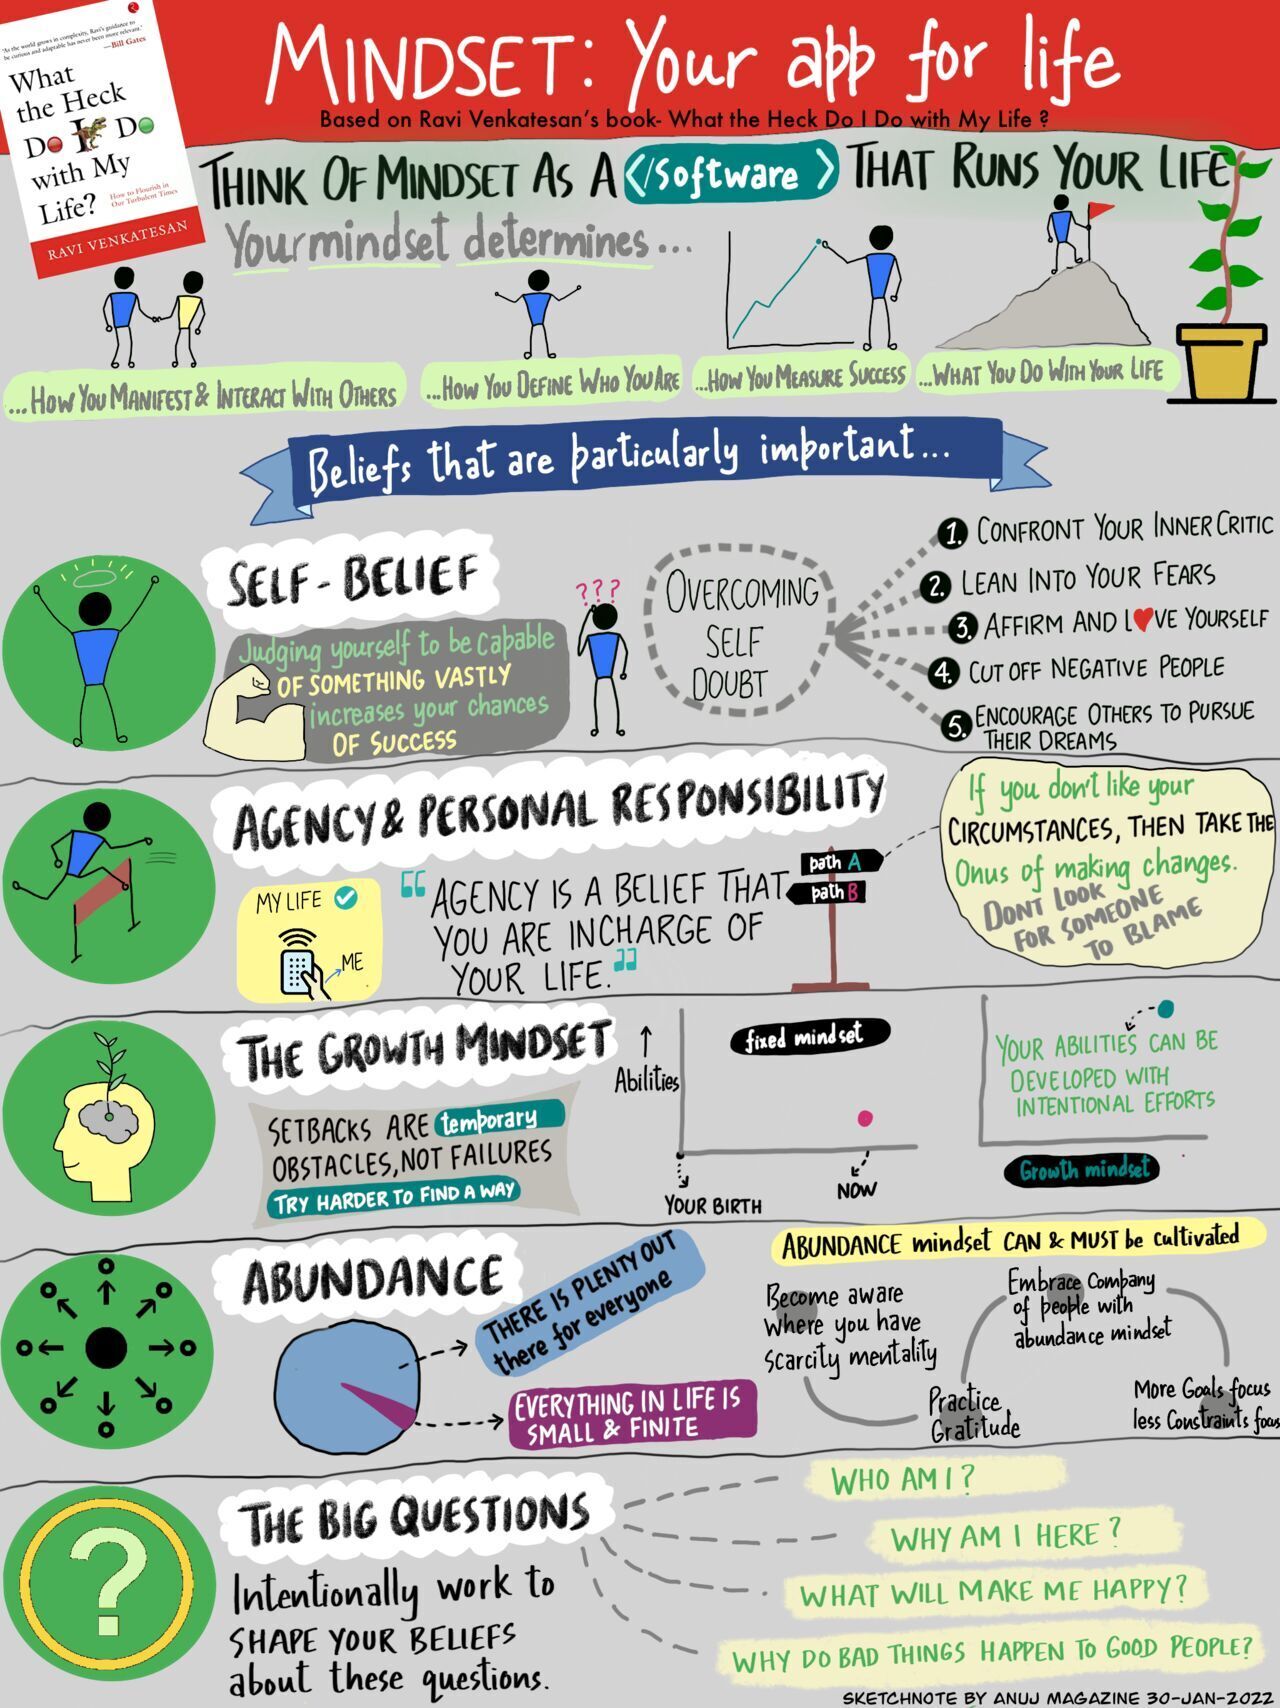 "As the world grows in complexity, Ravi's guidance to
be curious and adaptable has never been more relevant."
—Bill Gates
What
the Heck
Do I Do
with My
Life?
How to Flourish in
Our Turbulent Times
RAVI VENKATESAN
MINDSET: Your app for life
Based on Ravi Venkatesan's book- What the Heck Do I Do with My Life ?
THINK OF MINDSET AS A </Software > THAT RUNS YOUR LIFE
Your mindset determines...
...HOW YOU MANIFEST & INTERACT WITH OTHERS
...HOW YOU DEFINE WHO YOU ARE
...HOW YOU MEASURE SUCCESS
...WHAT YOU DO WITH YOUR LIFE
Beliefs that are particularly important...
SELF-BELIEF
Judging yourself to be capable
OF SOMETHING VASTLY
increases your chances
OF SUCCESS
???
OVERCOMING
SELF
DOUBT
1. CONFRONT YOUR INNER CRITIC
2. LEAN INTO YOUR FEARS
3. AFFIRM AND L♥VE YOURSELF
4. CUT OFF NEGATIVE PEOPLE
5. ENCOURAGE OTHERS TO PURSUE
THEIR DREAMS
AGENCY & PERSONAL RESPONSIBILITY
MY LIFE
ME
"AGENCY IS A BELIEF THAT
YOU ARE INCHARGE OF
YOUR LIFE."
path A
path B
If you don't like your
CIRCUMSTANCES, THEN TAKE THE
Onus of making changes.
DONT LOOK
FOR SOMEONE
TO BLAME
THE GROWTH MINDSET
SETBACKS ARE temporary
OBSTACLES, NOT FAILURES
TRY HARDER TO FIND A WAY
Abilities
fixed mindset
YOUR BIRTH
NOW
YOUR ABILITIES CAN BE
DEVELOPED WITH
INTENTIONAL EFFORTS
Growth mindset
ABUNDANCE
THERE IS PLENTY OUT
there for everyone
EVERYTHING IN LIFE IS
SMALL & FINITE
ABUNDANCE mindset CAN & MUST be cultivated
Become aware
where you have
scarcity mentality
Practice
Gratitude
Embrace Company
of people with
abundance mindset
More Goals focus
less Constraints focus
THE BIG QUESTIONS
Intentionally work to
SHAPE YOUR BELIEFS
about these questions.
?
WHO AM I?
WHY AM I HERE?
WHAT WILL MAKE ME HAPPY?
WHY DO BAD THINGS HAPPEN TO GOOD PEOPLE?
SKETCHNOTE BY ANUJ MAGAZINE 30-JAN-2022